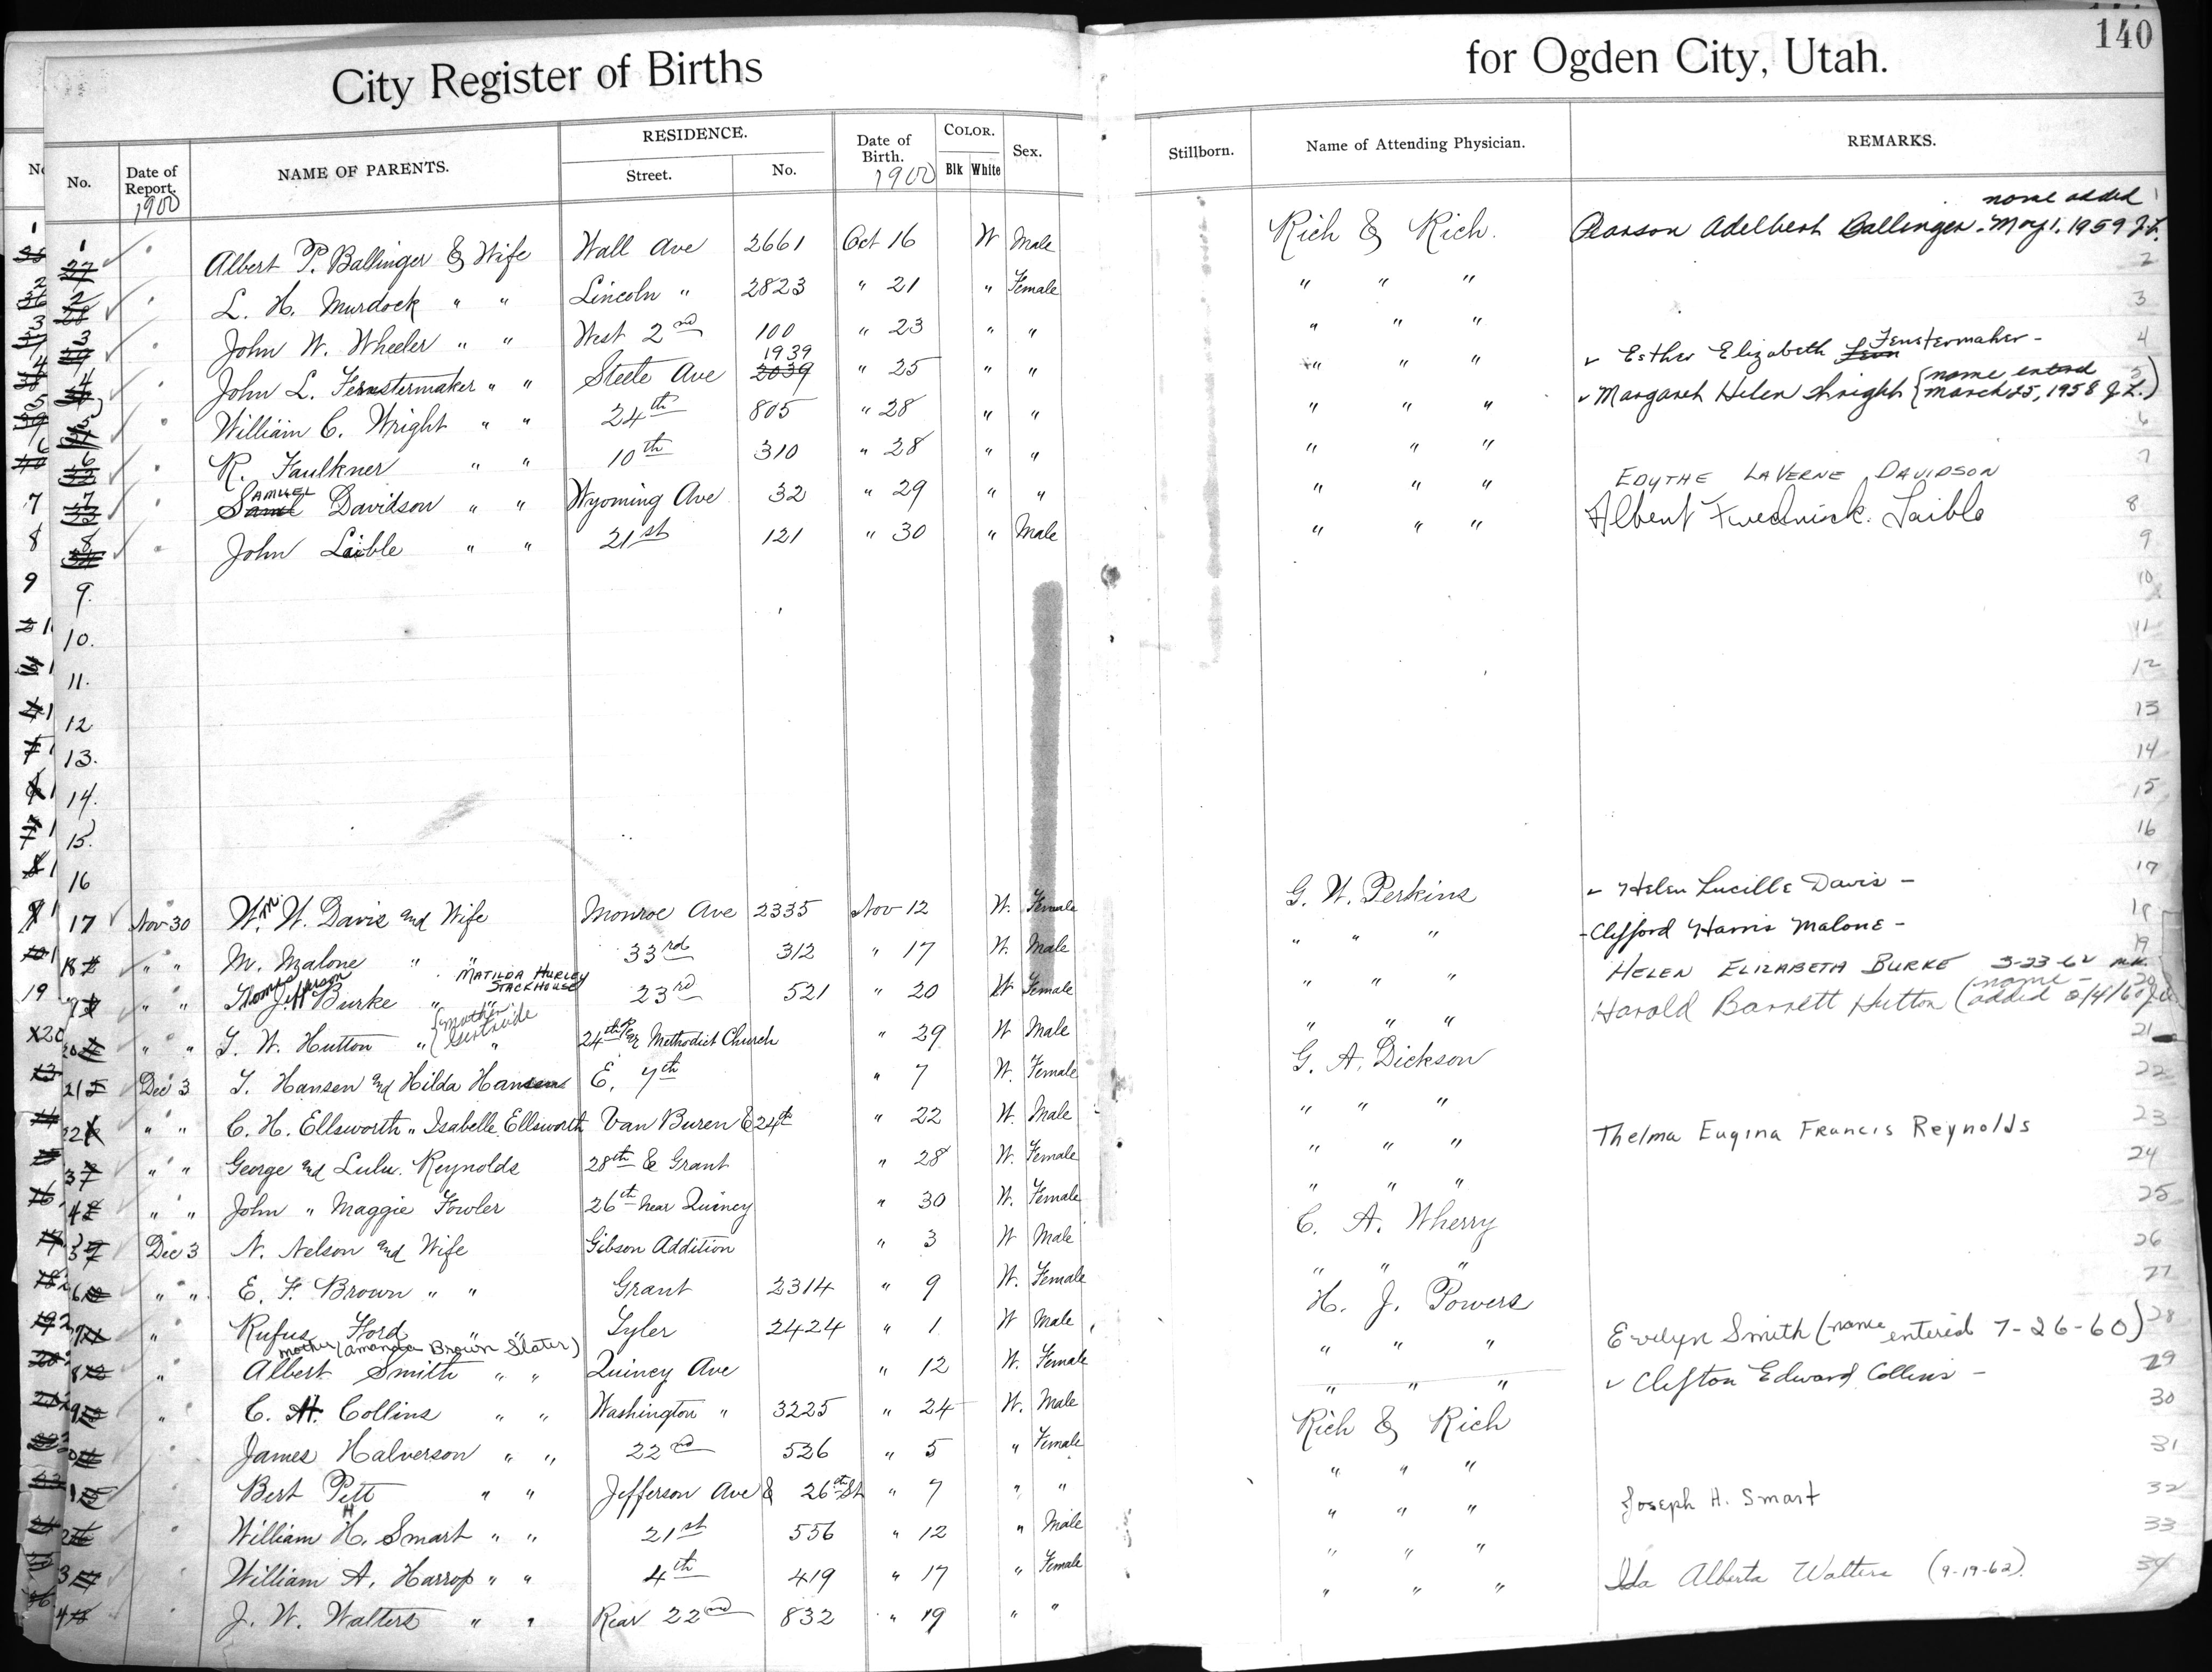 140
City Register of Births for Ogden City, Utah.
No. Date of Report. 1900 NAME OF PARENTS. RESIDENCE. Street. No. Date of Birth. 1900 COLOR. Blk White Sex. Stillborn. Name of Attending Physician. REMARKS.
name added
1 Albert P. Ballinger & Wife Wall Ave 2661 Oct 16 W Male Rich & Rich. Adelbert Ballinger. May 1. 1959 J.L.
2 L. H. Murdock " " Lincoln " 2823 " 21 " Female " " "
3 John W. Wheeler " " West 2nd 100 " 23 " " " " "
4 John L. Fenstermaker " " Steele Ave 1939 2039 " 25 " " " " " Esther Elizabeth Fenstermaker -
5 William C. Wright " " 24th 805 " 28 " " " " " Margaret Helen Wright (name entered March 25, 1958 J.L.)
6 R. Faulkner " " 10th 310 " 28 " " " " "
7 SAMUEL Davidson " " Wyoming Ave 32 " 29 " " " " " EDYTHE LAVERNE DAVIDSON
8 John Laible " " 21st 121 " 30 " Male " " " Albert Fredrick. Laible
9.
10.
11.
12
13.
14.
15.
16
17 Nov 30 Wm. W. Davis and Wife Monroe Ave 2335 Nov 12 W. Female G. W. Perkins Helen Lucille Davis -
18 " " M. Malone " " 33rd 312 " 17 W. Male " " " -Clifford Harris Malone -
19 " " Thomas Jefferson Burke " " MATILDA HURLEY STACKHOUSE 23rd 521 " 20 W Female " " " HELEN ELIZABETH BURKE 3-23-62
20 " " T. W. Hutton " " (mother Gertrude 24th Rear Methodist Church " 29 W Male " " " Harold Barrett Hutton (name added
21 Dec 3 T. Hansen and Hilda Hansen E. 7th " 7 W. Female G. A. Dickson
22 " " C. H. Ellsworth " Isabelle Ellsworth Van Buren & 24th " 22 W. Male " " "
3 " " George and Lulu. Reynolds 28th & Grant " 28 W. Female " " " Thelma Eugina Francis Reynolds
4 " " John " Maggie Fowler 26th near Quincy " 30 W. Female " " "
Dec 3 N. Nelson and Wife Gibson Addition " 3 W Male C. A. Wherry
6 " " E. F. Brown " " Grant 2314 " 9 W. Female " " "
7 " Rufus Ford " " Tyler 2424 " 1 W Male H. J. Powers
mother (Amanda Brown Slater)
8 " Albert Smith " " Quincy Ave " 12 W. Female " " " Evelyn Smith (name entered 7-26-60)
9 " C. H. Collins " " Washington " 3225 " 24 W. Male " " " Clifton Edward Collins -
James Halverson " " 22nd 526 " 5 " Female Rich & Rich
1 Bert Pett " " Jefferson Ave & 26th St " 7 " " " " "
2 William H. Smart " " 21st 556 " 12 " Male " " " Joseph H. Smart
3 William A. Harrop " " 4th 419 " 17 " Female " " "
4 J. W. Walters " " Rear 22nd 832 " 19 " " " " " Ida Alberta Walters (9-19-62).